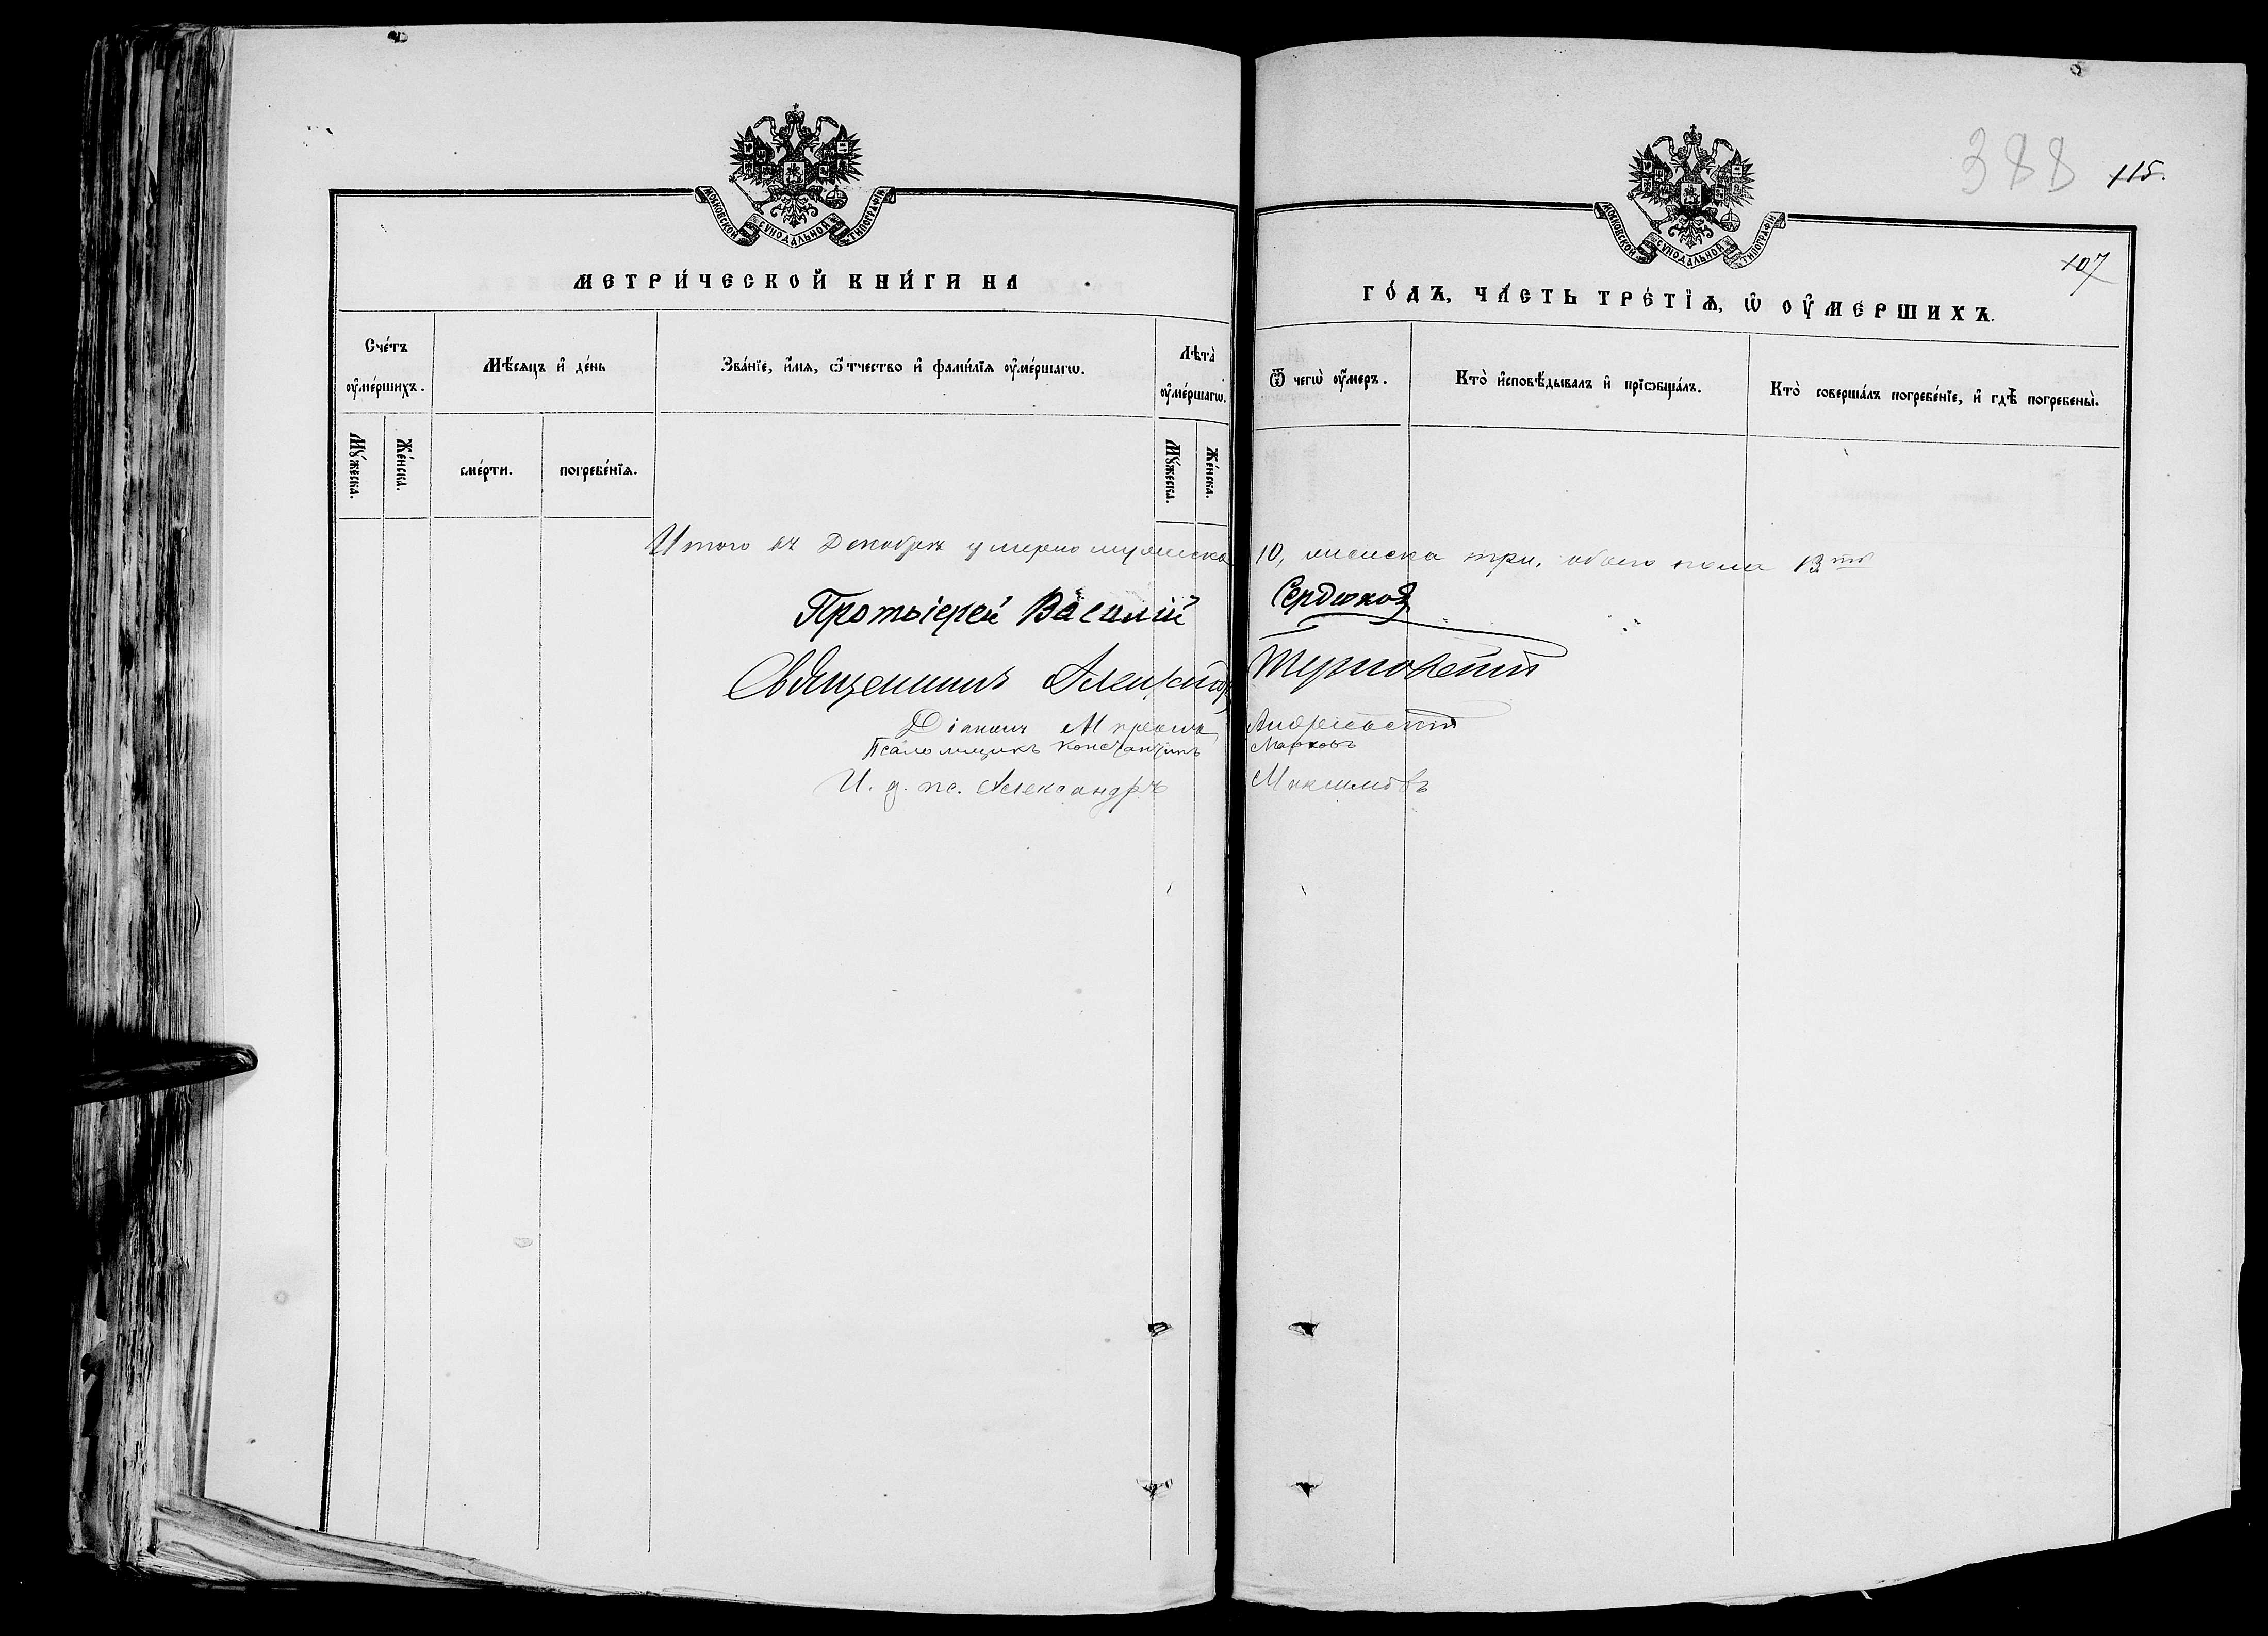 388 115.
107
МОСКОВСКОЙ СѴНОДАЛЬНОЙ ТИПОГРАФІИ
МОСКОВСКОЙ СѴНОДАЛЬНОЙ ТИПОГРАФІИ
МЕТРИ́ЧЕСКОЙ КНИ́ГИ НА ГО́ДЪ, ЧА́СТЬ ТРЕ́ТІѦ, Ѡ҆ ОУ҆МЕРШИХЪ.
Сче́тъ оу҆ме́ршихъ.
Мѣ́сяцъ и҆ де́нь
Зва́нїе, и҆́мя, ѻ҆́тчество и҆ фами́лїя оу҆ме́ршагѡ.
Лѣта̀ оу҆ме́ршагѡ.
Ѿ чегѡ̀ оу҆́меръ.
Кто̀ и҆сповѣ́дывалъ и҆ прїѡбща́лъ.
Кто̀ соверша́лъ погребе́нїе, и҆ гдѣ̀ погребены̀.
Мꙋ́жеска.
Же́нска.
сме́рти.
погребе́нїя.
Мꙋ́жеска.
Же́нска.
Итого въ Декабрѣ умерло мужеска 10, женска три, обоего пола 13ть
Протоіерей Василій Сердюковъ
Священникъ Александръ Терновскій
Діаконъ Андріевскій
Псаломщикъ Константинъ Марковъ
И. д. пс. Александръ Максимовъ